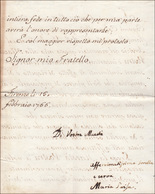 intiera fede in tutto ciò che per mia parte
avrà l'onore di rappresentarle.
E col maggior rispetto mi protesto
Signor mio Fratello
Firenze li 15.
febbraio 1766.
Di Vostra Maestà
e
Maria Luisa